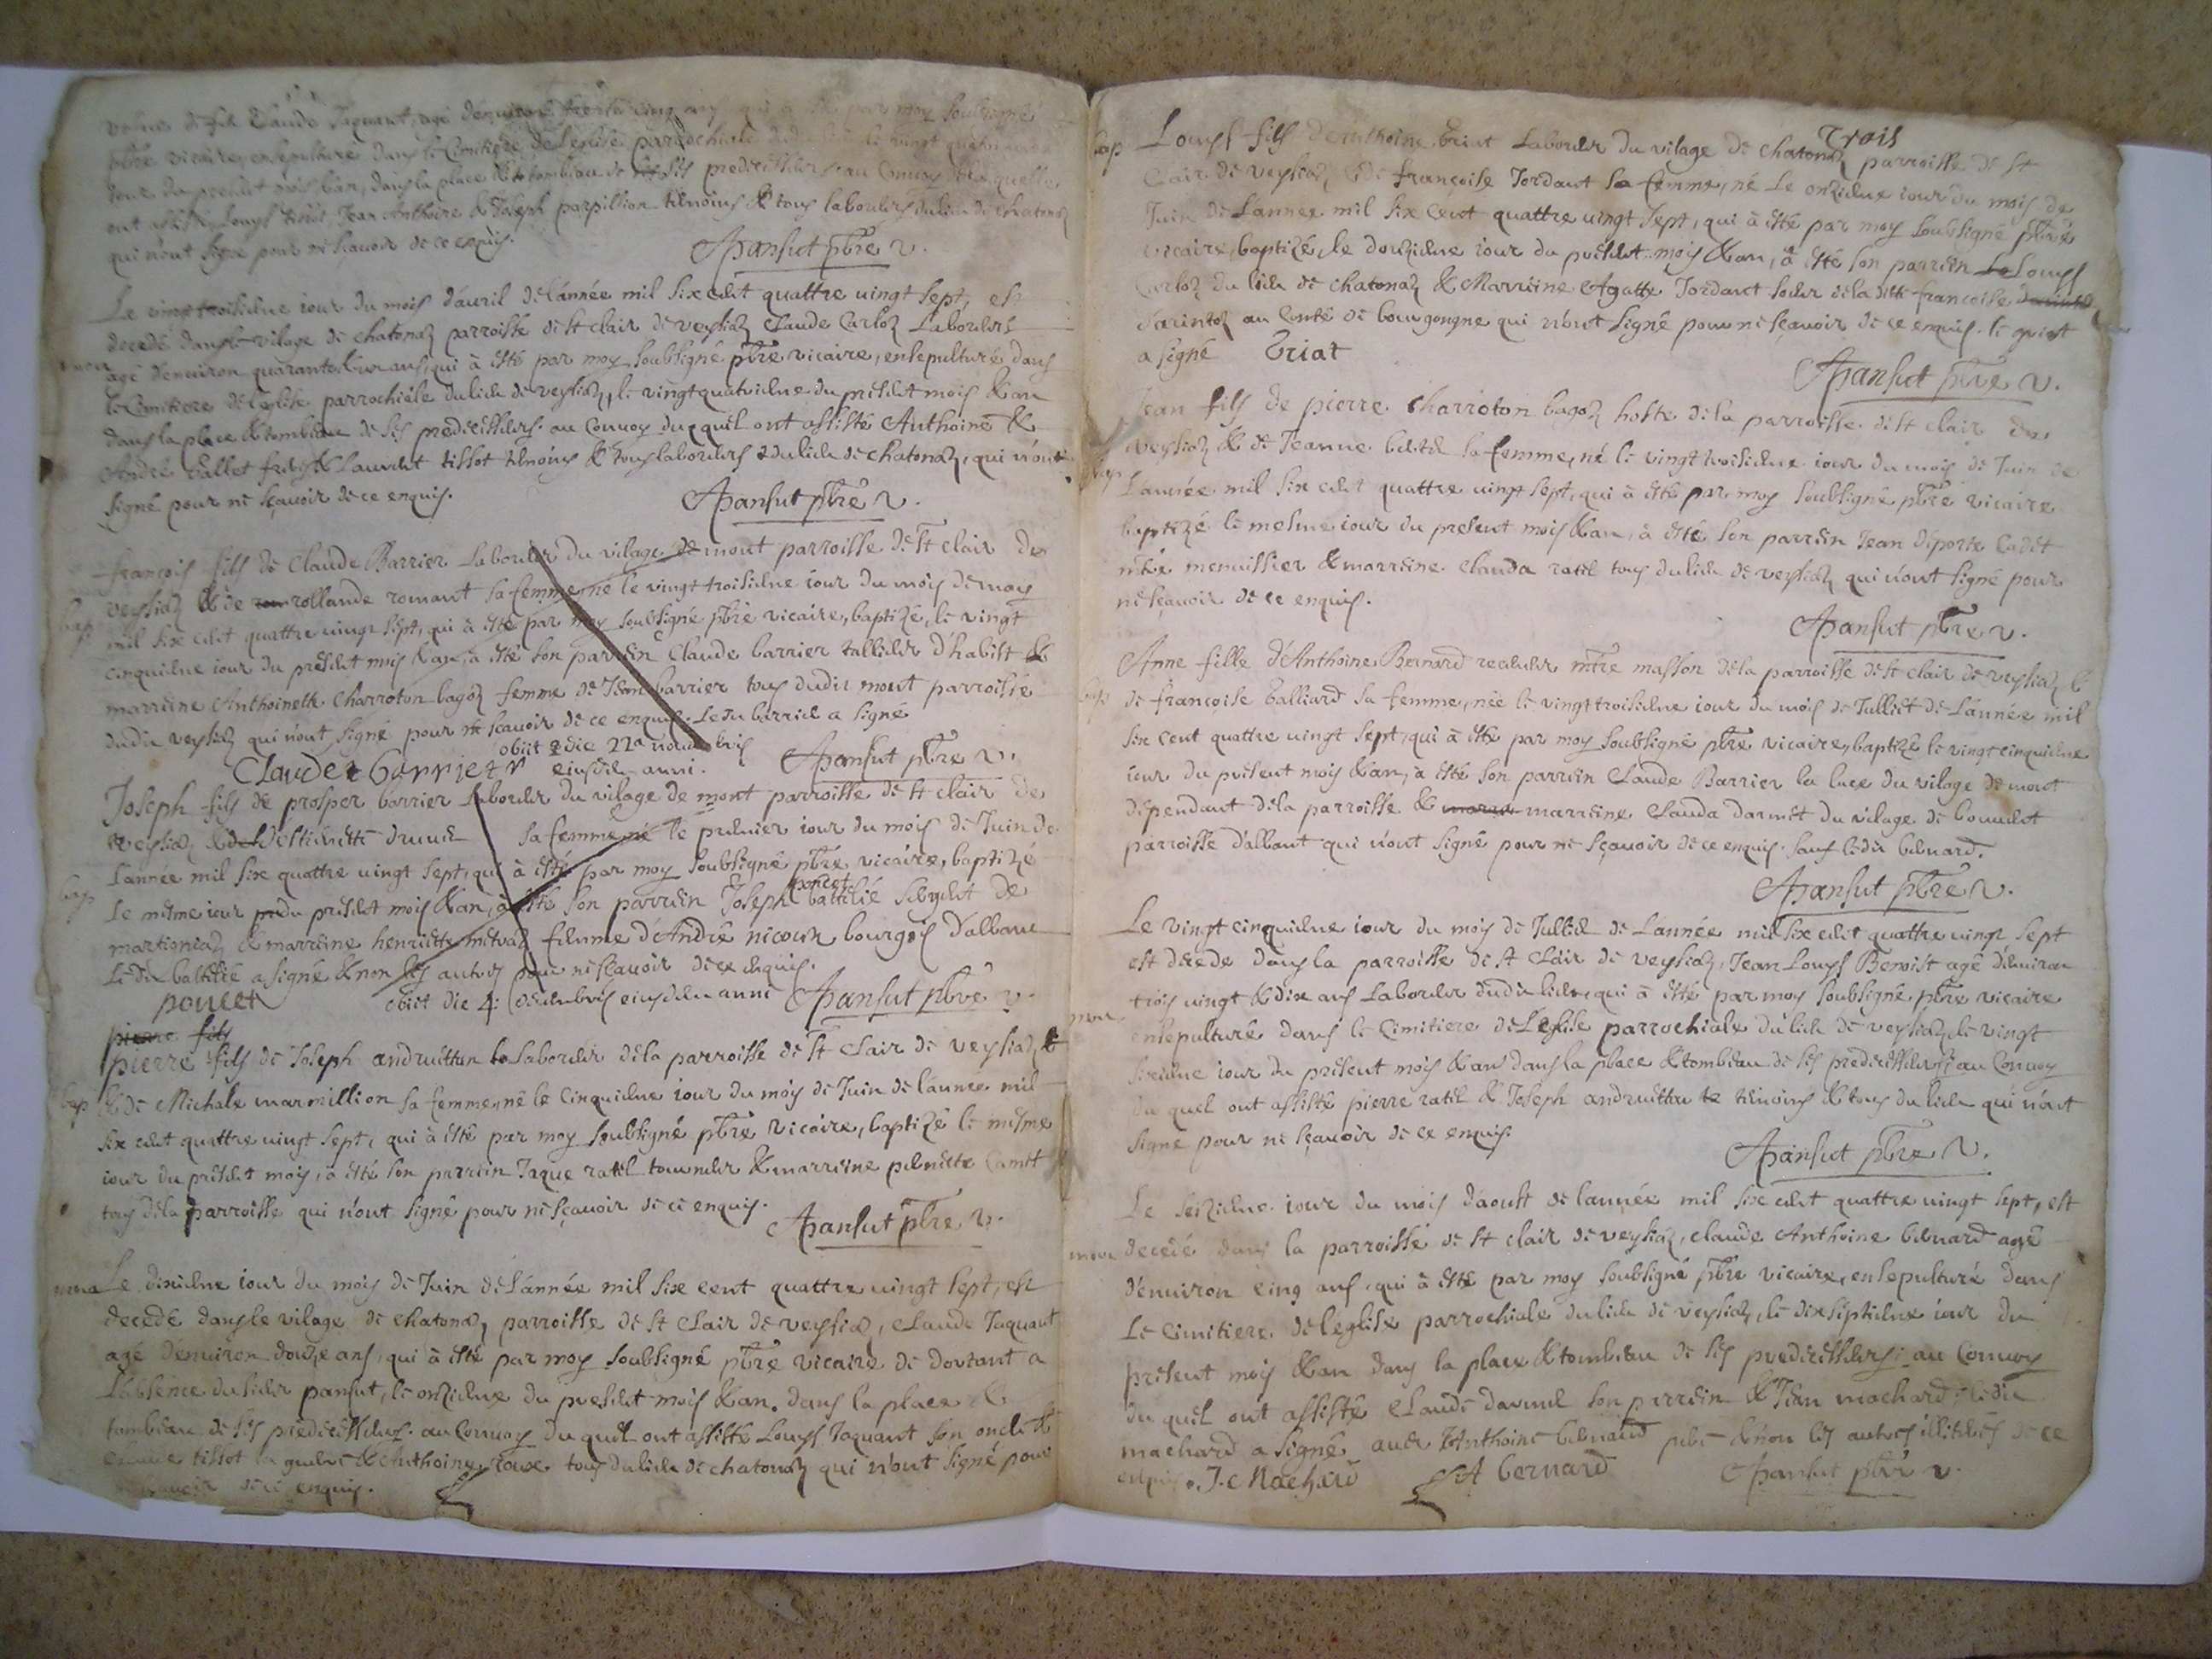 vefue de feu Claude Jaquant, agé d'enuiron trente cinq ans qui a esté par moy soubsigné
pbre vicaire, ensepulturé dans le Cimitiere de l'eglise parrochiale le vingt quatrieme
iour du present mois & an, dans la place & tombeau de ses predecesseurs. au Conuoy de laquelle
ont assisté Louys Jean Anthoine & Joseph parpillion temoins & tous laboureurs du lieu de chatonaz
qui n'ont signé pour ne sçauoir de ce enquis.
Pansut pbre v.
Le vingt troisieme iour du mois d'auril de l'année mil six cent quattre uingt sept, est
decedé dans le vilage de chatonaz parroisse de st clair de veysiaz Claude Carloz Laboureur
agé d'enuiron quarante ans, qui à esté par moy soubsigné pbre vicaire, ensepulturé dans
le Cimitiere de l'eglise parrochiale du lieu de veysiaz, le vingt quatrieme du present mois & an
dans la place & tombeau de ses predecesseurs. au Conuoy duquel ont assisté Anthoine &
André Vallet freres & Laurent tissot temoins & tous laboureurs du lieu de chatonaz, qui n'ont
signé pour ne sçauoir de ce enquis.
Pansut pbre v.
françois fils de Claude Barrier Laboureur du vilage de mont parroisse de st clair de
bap
veysiaz & de rollande romant sa femme, né le vingt troisieme iour du mois de may
mil six cent quattre uingt sept, qui à esté par moy soubsigné pbre vicaire, baptizé, le vingt
cinquieme iour du present mois & an, à esté son parrein Claude barrier tallieur d'habist &
marreine Anthoinette Charroton bagoz femme de Jean barrier tous dudit mont parroisse
dudit veysiaz qui n'ont signé pour ne sçauoir de ce enquis. Ledit barrier a signé
obiit die 22a nouembris
Claude barrier eiusdem anni. Pansut pbre v.
Joseph fils de prosper barrier laboureur du vilage de mont parroisse de st clair de
veysiaz & d'Estienette sa femme, né le premier iour du mois de Juin de
bap
l'année mil six quattre uingt sept, qui à esté par moy soubsigné pbre vicaire, baptizé
le mesme iour du present mois & an, à esté son parrein Joseph poncet battelié sergent de
martigniaz & marreine henriette metraz femme d'André nicoux bourgois d'albanc
Ledit battelié a signé & non les autres pour ne sçauoir de ce enquis.
poncet obiit die 4: decembris eiusdem anni Pansut pbre v.
pierre fils
pierre fils de Joseph andruettan laboureur de la parroisse de st Clair de veysiaz &
bap
& de Michale marmillion sa femme, né le Cinquieme iour du mois de Juin de l'année mil
six cent quattre uingt sept, qui à esté par moy soubsigné pbre vicaire, baptizé le mesme
iour du present mois, à esté son parrein Jaque ratel tourneur & marreine pernette Camet
tous de la parroisse qui n'ont signé pour ne sçauoir de ce enquis.
Pansut pbre v.
Le dixieme iour du mois de Juin de l'année mil six cent quattre uingt sept, est
decedé dans le vilage de chatonaz, parroisse de st Clair de veysiaz, Claude Jaquant
agé d'enuiron douze ans, qui à esté par moy soubsigné pbre vicaire de dortant a
l'absence du sieur pansut, le onzieme du present mois & an. dans la place &
tombeau de ses predecesseurs. au Conuoy du quel ont assisté Louys Jaquant son oncle &
Claude tissot & Anthoine tous du lieu de chatonaz qui n'ont signé pour
sçauoir de ce enquis.
trois
bap
Louys fils d'Anthoine triat Laboureur du vilage de chatonaz parroisse de st
Clair de veysiaz & de françoise Jordant sa femme, né le onzieme iour du mois de
Juin de l'année mil six cent quattre uingt sept, qui à esté par moy soubsigné pbre
vicaire, baptizé, le douzieme iour du present mois & an, à esté son parrein Louys
Carloz du lieu de chatonaz & Marreine Agatte Jordant soeur de la ditte françoise
d'arintoz au Conté de bourgongne qui n'ont signé pour ne sçauoir de ce enquis. le
a signé triat
Pansut pbre v.
Jean fils de pierre Charroton bagoz hoste de la parroisse de st clair de
veysiaz & de Jeanne sa femme, né le vingt troisieme iour du mois de Juin de
bap
l'année mil six cent quattre uingt sept, qui à esté par moy soubsigné pbre vicaire
baptizé le mesme iour du present mois & an, à esté son parrein Jean deporte Cadet
mtre menuissier & marreine Clauda ratel tous du lieu de veysiaz qui n'ont signé pour
ne sçauoir de ce enquis.
Pansut pbre v.
Anne fille d'Anthoine Bernard receueur mtre masson de la parroisse de st clair de veysiaz &
bap
de françoise balliard sa femme, née le vingt troisieme iour du mois de Julliet de l'année mil
six cent quattre uingt sept, qui à esté par moy soubsigné pbre vicaire, baptizé le vingt cinquieme
iour du present mois & an, à esté son parrein Claude Barrier la luce du vilage de mont
dependant de la parroisse & marreine Clauda darmet du vilage de bouuent
parroisse d'albant qui n'ont signé pour ne sçauoir de ce enquis. sauf ledit bernard.
Pansut pbre v.
Le vingt cinquieme iour du mois de Julliet de l'année mil six cent quattre uingt sept
est decede dans la parroisse de st Clair de veysiaz, Jean Louys Benoist agé d'enuiron
trois uingt & dix ans Laboureur dudit lieu, qui à esté par moy soubsigné pbre vicaire
ensepulturé dans le Cimitiere de l'eglise parrochiale du lieu de veysiaz, le vingt
sixieme iour du present mois & an dans la place & tombeau de ses predecesseurs, au Conuoy
du quel ont assisté pierre ratel & Joseph andruettan temoins & tous du lieu qui n'ont
signé pour ne sçauoir de ce enquis.
Pansut pbre v.
Le seizieme iour du mois d'aoust de l'année mil six cent quattre uingt sept, est
decedé dans la parroisse de st clair de veysiaz, claude Anthoine bernard agé
d'enuiron cinq ans, qui à esté par moy soubsigné pbre vicaire, ensepulturé dans
Le Cimitiere de l'eglise parrochiale du lieu de veysiaz, le dixseptieme iour du
present mois & an dans la place & tombeau de ses predecesseurs: au Conuoy
du quel ont assisté Claude darmet son parrein & Jean machard. ledit
machard a signé auec Anthoine bernard pere & non les autres illiteres de ce
enquis. J. Machard A bernard Pansut pbre v.